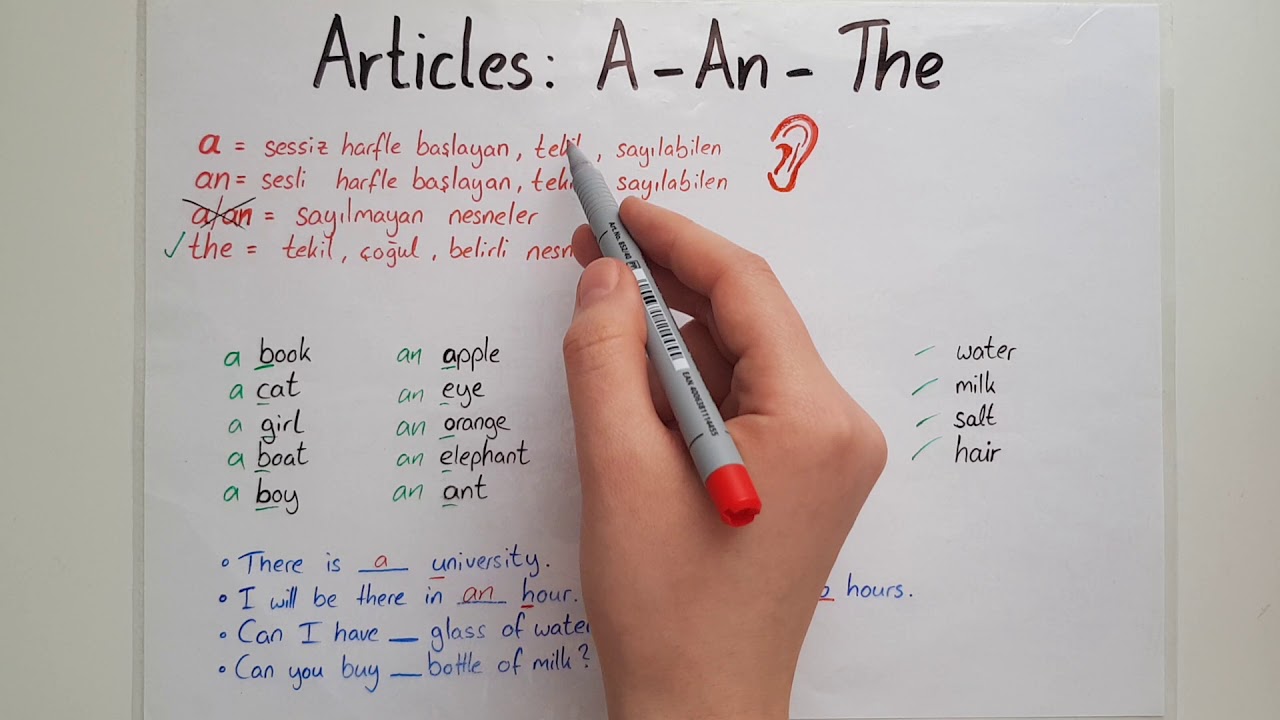 Articles: A - An - The
a = sessiz harfle başlayan, tekil, sayılabilen
an = sesli harfle başlayan, sayılabilen
a/an = sayılmayan nesneler
✓ the = tekil, çoğul, belirli
a book
a cat
a girl
a boat
a boy
an apple
an eye
an orange
an elephant
an ant
water
milk
salt
hair
• There is a university.
• I will be there in an hour. hours.
• Can I have __ glass of water
• Can you buy __ bottle of milk?
Art.No. 852/40 PP
EAN 4006381114455